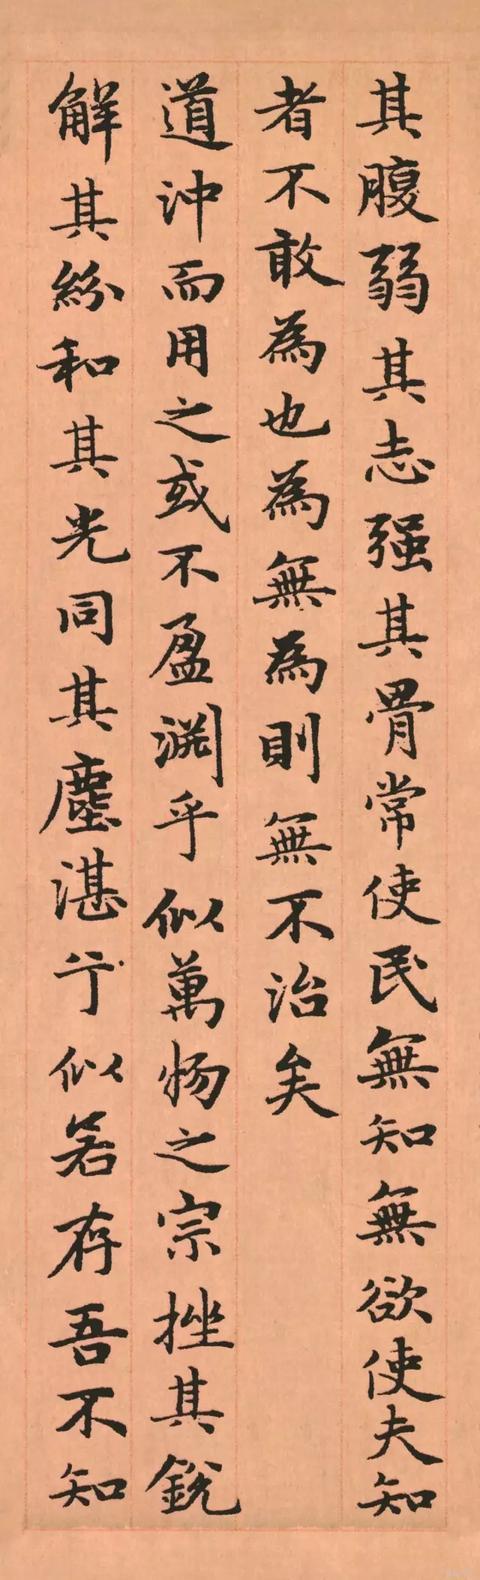 其腹弱其志强其骨常使民無知無欲使夫知
者不敢為也為無為則無不治矣
道沖而用之或不盈淵乎似萬物之宗挫其銳
解其紛和其光同其塵湛兮似若存吾不知